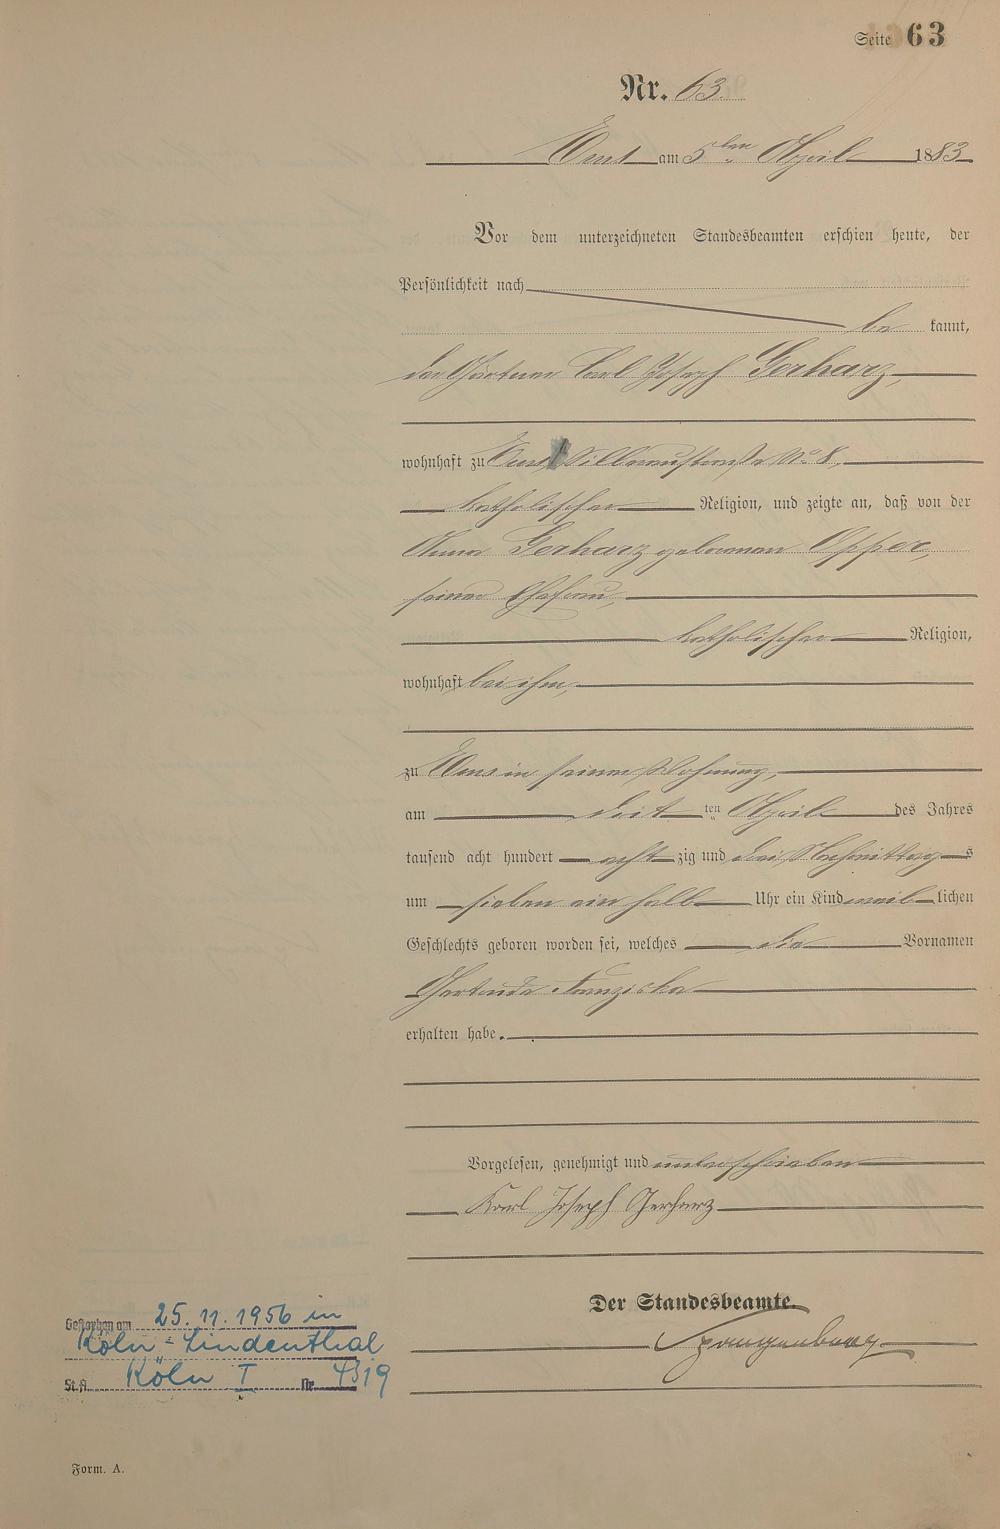 Seite 63
Nr. 63.
Ems am 5ten April 1883
Vor dem unterzeichneten Standesbeamten erschien heute, der
Persönlichkeit nach
be kannt,
der Gärtner Carl Joseph Gerharz,
wohnhaft zu Ems, Silberaustraße No 8,
katholischer Religion, und zeigte an, daß von der
Anna Gerharz geborenen Opper,
seiner Ehefrau,
katholischer Religion,
wohnhaft bei ihm,
zu Ems in seiner Wohnung,
am dritten April des Jahres
tausend acht hundert achtzig und drei Nachmittags
um sieben ein halb Uhr ein Kind weiblichen
Geschlechts geboren worden sei, welches die Vornamen
Gertrude Franziska
erhalten habe.
Vorgelesen, genehmigt und unterschrieben
Karl Joseph Gerharz
Der Standesbeamte.
Spangenberg
Gestorben am 25.11.1956 in
Köln-Lindenthal
St.A. Köln I Nr. 4319
Form. A.